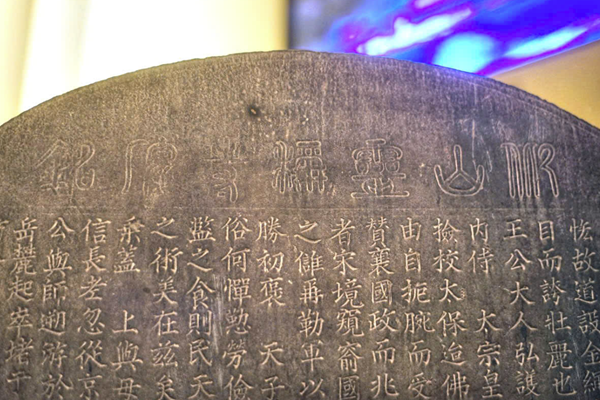 山靈寺銘
故道設金繩
目而誇壯麗也
王公大人弘護
内侍 太宗皇
檢校太保迨佛
由自扼腕而受
賛襄國政而兆
者宋境窺窬國
之讎再勒平以
勝初褒 天子
俗何憚懃勞儉
濫之食則民天
之術美在茲矣
乘蓋 上與毋
信長老忽從京
公與師遡游於
岳麓起窣堵于